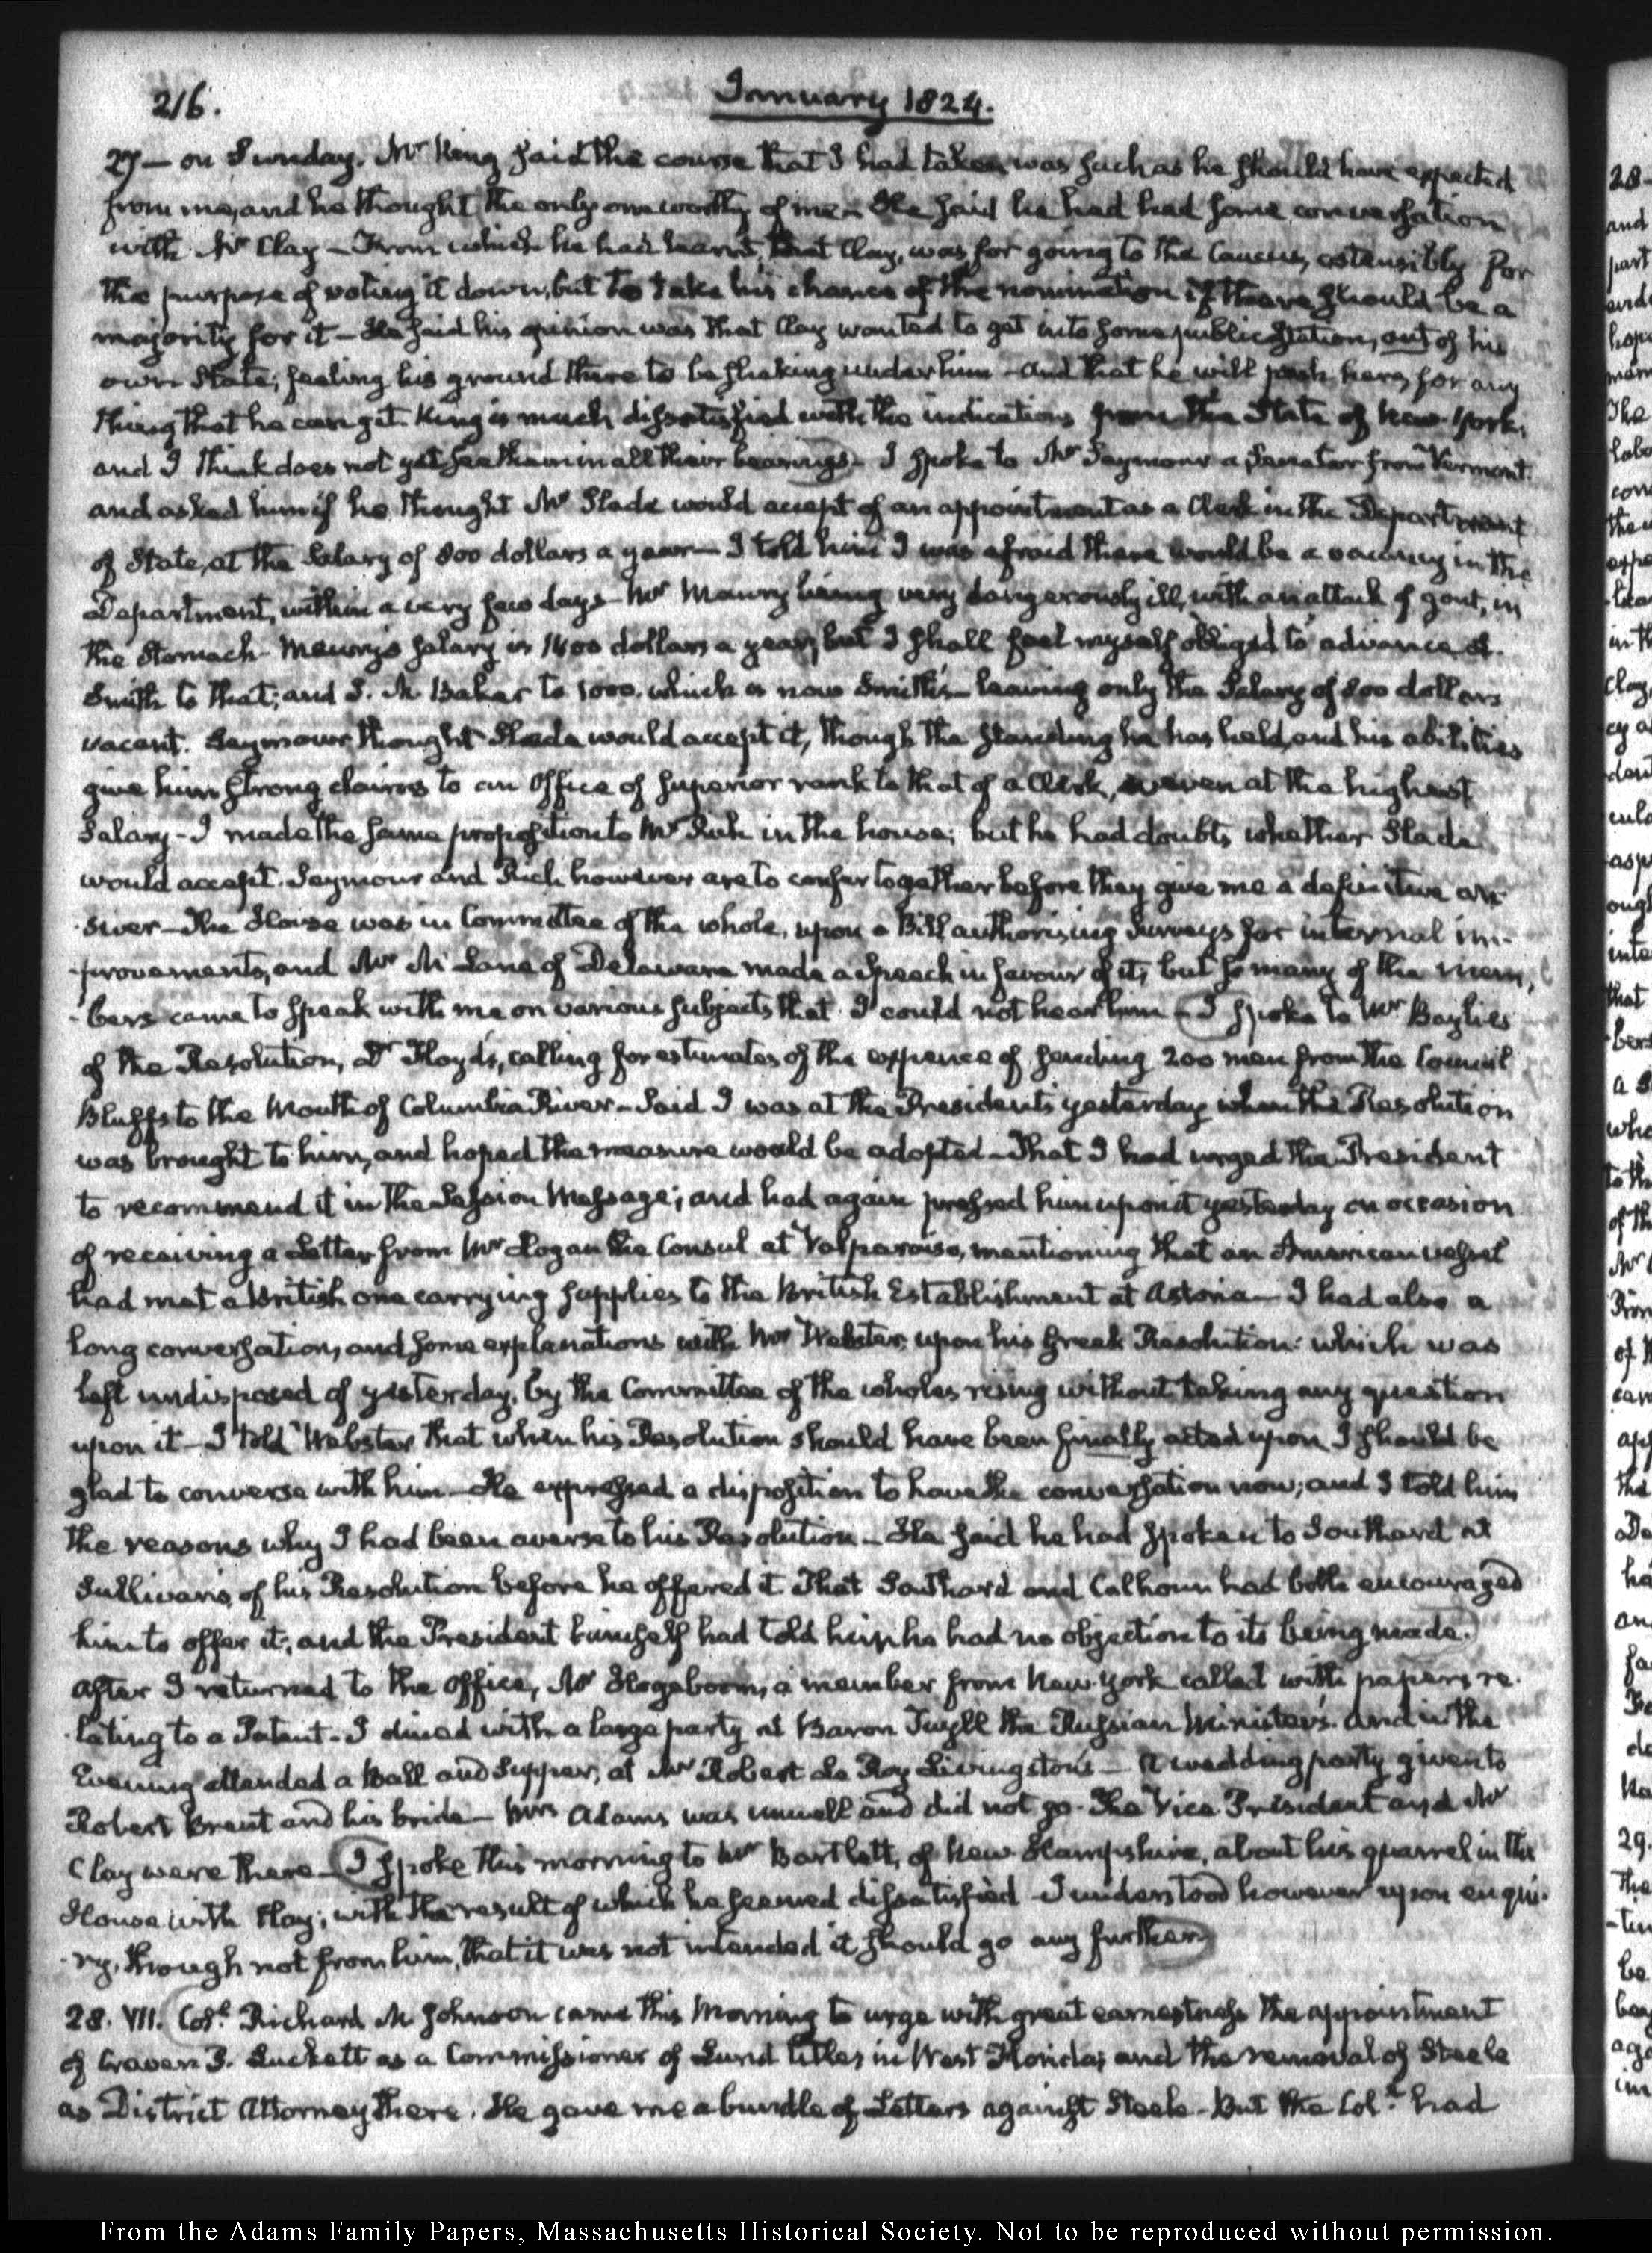 216.
January 1824.
27— on Sunday. Mr King said the course that I had taken was such as he should have expected
from me, and he thought the only one worthy of me— He said he had had some conversation
with Mr Clay— From which he had learnt, that Clay, was for going to the Caucus, ostensibly for
the purpose of voting it down, but to take his chance of the nomination if there should be a
majority for it— He said his opinion was that Clay wanted to get into some public Station, out of his
own State; feeling his ground there to be shaking under him— And that he will push here, for any
thing that he can get. King is much dissatisfied with the indications from the State of New-York,
and I think does not yet see them in all their bearings— I spoke to Mr Seymour a Senator from Vermont.
and asked him if he thought Mr Slade would accept of an appointment as a Clerk in the Department
of State, at the Salary of 800 dollars a year— I told him I was afraid there would be a vacancy in the
Department, within a very few days— Mr Maury being very dangerously ill, with an attack of gout, in
the Stomach— Maury's salary is 1400 dollars a year, but I shall feel myself obliged to advance
Smith to that; and J. M. Baker to 1000. which is now Smith's— leaving only the Salary of 800 dollars
vacant. Seymour thought Slade would accept it, though the standing he has held, and his abilities
give him strong claims to an Office of superior rank to that of a Clerk, even at the highest
Salary— I made the same proposition to Mr Rich in the house; but he had doubts whether Slade
would accept. Seymour and Rich however are to confer together before they give me a definitive an-
-swer— The House was in Committee of the whole, upon a Bill authorising Surveys for internal im-
-provements, and Mr M'Lane of Delaware made a Speech in favour of it, but so many of the mem-
-bers came to speak with me on various subjects that I could not hear him— I spoke to Mr Baylies
of the Resolution, Dr Floyd's, calling for estimates of the expence of sending 200 men from the Council
Bluffs to the Mouth of Columbia River— Said I was at the President's yesterday when the Resolution
was brought to him, and hoped the measure would be adopted— That I had urged the President
to recommend it in the Session Message; and had again pressed him upon it yesterday on occasion
of receiving a Letter from Mr Hogan the Consul at Valparaiso, mentioning that an American vessel
had met a British one carrying supplies to the British Establishment at Astoria— I had also a
long conversation, and some explanations with Mr Webster, upon his Greek Resolution: which was
left undisposed of yesterday, by the Committee of the whole's rising without taking any question
upon it— I told Webster that when his Resolution should have been finally acted upon I should be
glad to converse with him— He expressed a disposition to have the conversation now; and I told him
the reasons why I had been averse to his Resolution— He said he had spoken to Southard at
Sullivan's, of his Resolution before he offered it That Southard and Calhoun had both encouraged
him to offer it; and the President himself had told him he had no objection to its being made.
After I returned to the Office, Mr Hogeboom, a member from New-York called with papers re-
-lating to a Patent— I dined with a large party at Baron Tuyll the Russian Minister's. And in the
Evening attended a Ball and Supper, at Mr Robert Le Roy Livingston's— A wedding party given to
Robert Brent and his bride— Mrs Adams was unwell and did not go. The Vice President and Mr
Clay were there— I spoke this morning to Mr Bartlett, of New-Hampshire, about his quarrel in the
House with Clay; with the result of which he seemed dissatisfied— I understood however upon enqui-
-ry, though not from him, that it was not intended it should go any further
28. VII. Col. Richard M. Johnson came this Morning to urge with great earnestness the appointment
of Craven P. Luckett as a Commissioner of Land titles in West Florida; and the removal of Steele
as District Attorney there. He gave me a bundle of Letters against Steele— But the Col. had
From the Adams Family Papers, Massachusetts Historical Society. Not to be reproduced without permission.